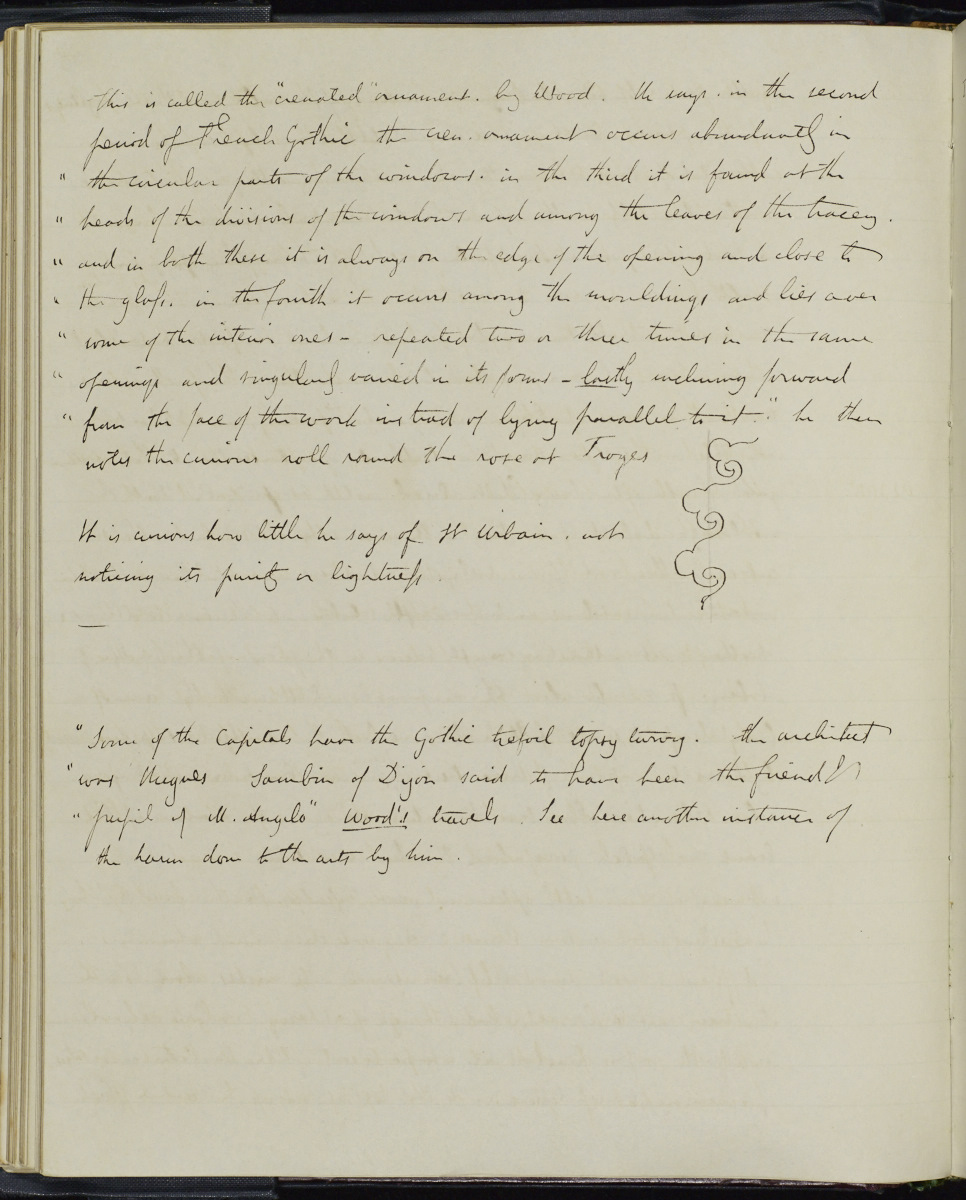 This is called the "crenated" ornament. by Wood. He says. in the second
period of French Gothic the cren. ornament occurs abundantly in
" the circular parts of the windows. in the third it is found at the
" heads of the divisions of the windows and among the leaves of the tracery.
" and in both these it is always on the edge of the opening and close to
" the glass. in the fourth it occurs among the mouldings and lies over
" some of the interior ones - repeated two or three times in the same
" openings and singularly varied in its forms - lastly inclining forward
" from the face of the work instead of lying parallel to it." he then
notes the curious roll round the rose at Troyes
It is curious how little he says of St Urbain. not
noticing its purity or lightness.
"Some of the Capitals have the Gothic trefoil topsy turvy. The architect
"was Hugues Sambin of Dijon said to have been the friend &
" pupil of M. Angelo" Wood's travels. See here another instance of
the harm done to the arts by him.